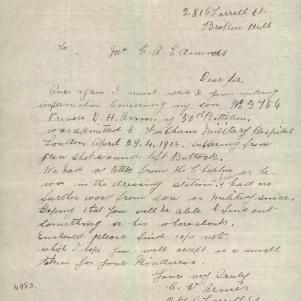 281 Farrell St
Broken Hill
To Mr C A Edmonds
Dear Sir,
Once again I must write to you asking
information concerning my son No 3764
Private D. H. Arms, of 50th Battalion,
was admitted to Fulham Military Hospital
London April 29.4.1918. suffering from
gun shot wound left Buttock.
We had a letter from the Chaplin as he
was in the dressing station, & had no
further word from son or Military since.
Hoping that you will be able to find out
something or his whereabouts.
Enclosed please find 10/s note
which I hope you will accept as a small
token for your kindness.
Yours very Truly
C. W. Armes
281 Farrell St